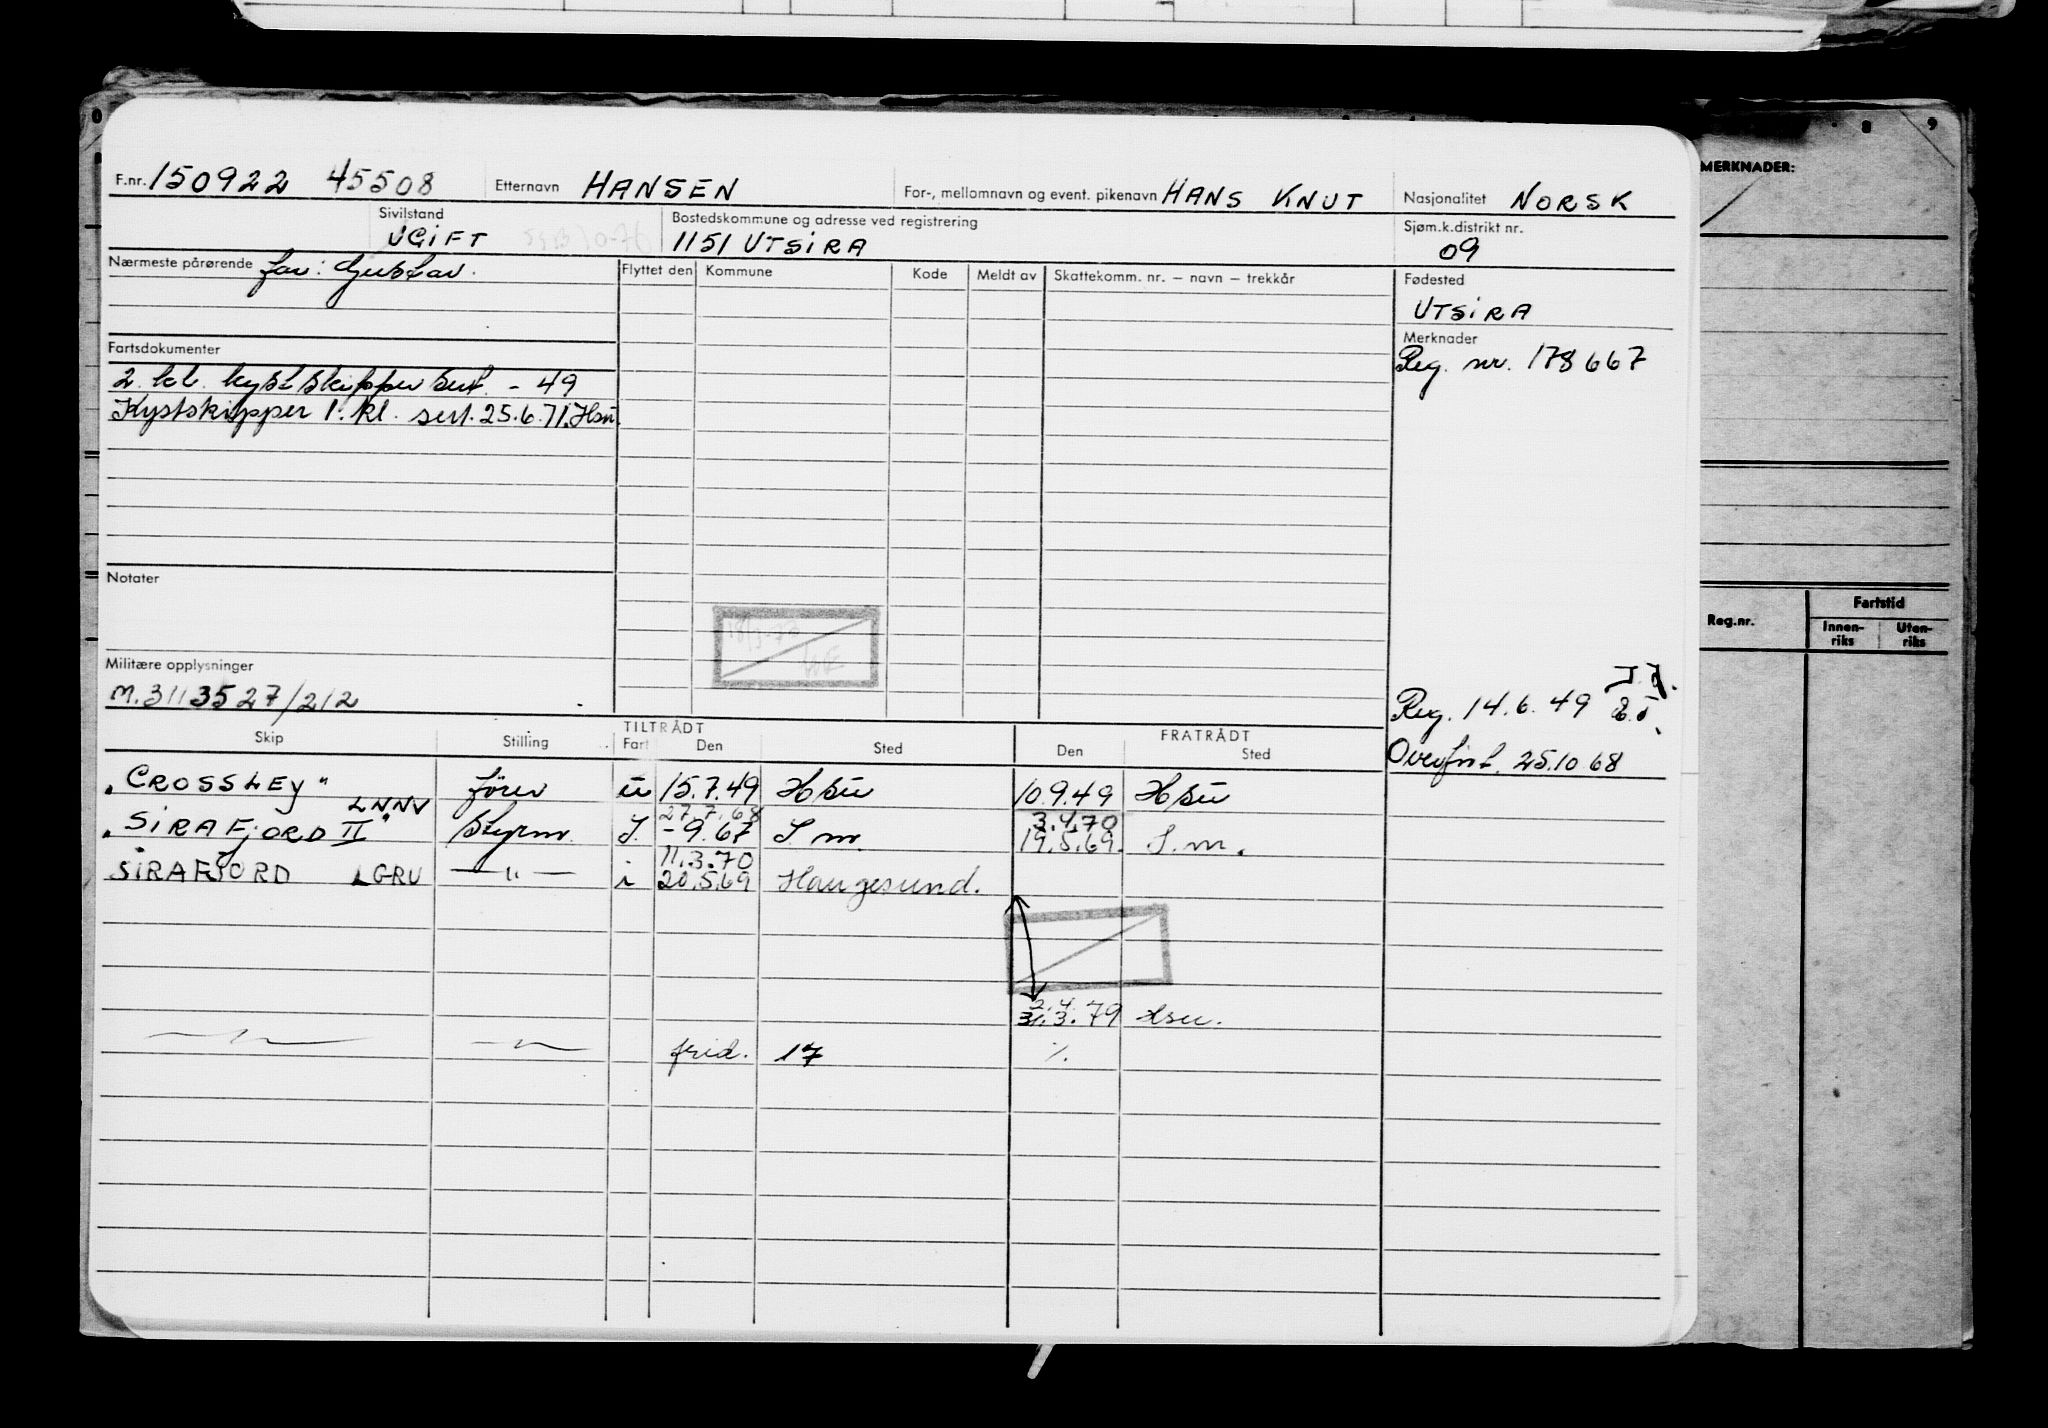 F.nr. 150922 45508 Etternavn HANSEN For-, mellomnavn og event. pikenavn HANS KNUT Nasjonalitet NORSK
MERKNADER:
Sivilstand Bostedskommune og adresse ved registrering Sjøm.k.distrikt nr.
UGIFT 1151 UTSIRA 09
Nærmeste pårørende far: Gustav. Flyttet den Kommune Kode Meldt av Skattekomm. nr. – navn – trekkår Fødested
UTSIRA
Merknader
Reg. nr. 178667
Fartsdokumenter
2. kl. kystskipper sert. - 49
Kystskipper 1. kl. sert. 25.6.71. Hsu.
Notater
Reg.nr. Fartstid
Innen-riks Uten-riks
Militære opplysninger
M.3113527/212
Reg. 14.6.49
Overført. 25.10 68
TILTRÅDT FRATRÅDT
Skip Stilling Fart Den Sted Den Sted
"CROSSLEY" fører u 15.7.49 HSu 10.9.49 HSu
LNNV 27.7.68 3.4.70
"SIRAFJORD II" Styrm. I. -9.67 S.m. 19.5.69. S.m.
11.3.70
SIRAFJORD LGRU —"— i 20.5.69 Haugesund.
2.4.
31.3.79 Hsu.
—"— —"— frid. 17 %.